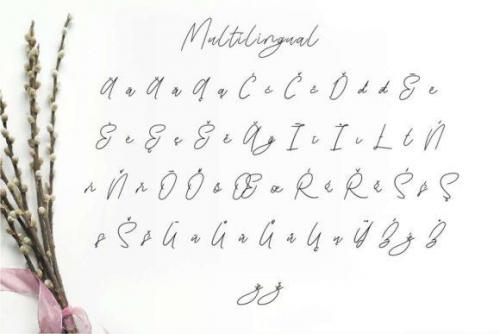 Multilingual
Ā ā Ă ă Ą ą Ć ć Č č Ď ď đ Ē ē
Ę ę Ě ě Ğ ğ Ī ī Ł ł Ń
ń Ň ň Ō Ő ő Œ œ Ŕ ŕ Ř ř Ś ś Ş
ş Š š Ū ū Ů ů Ű ű Ų ų Ÿ Ź ź Ż
ż ž